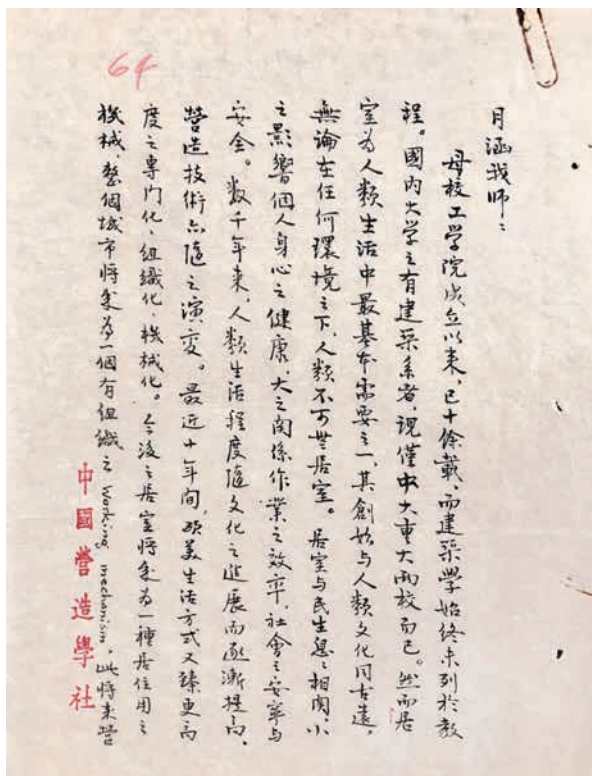 64
月涵我师：
母校工学院成立以来，已十馀載，而建築學始终未列於教
程。國内大学之有建築系者，现僅中大重大兩校而已。然而居
室为人類生活中最基本需要之一，其創始与人類文化同古遠，
無論在任何環境之下，人類不可無居室。居室与民生息息相関，小
之影響個人身心之健康，大之関係作業之效率，社會之安寧与
安全。数千年来，人類生活程度随文化之進展而逐漸提高，
營造技術亦随之演变。最近十年間，欧美生活方式又臻更高
度之専門化、組織化、機械化。今後之居室將成为一種居住用之
機械，整個城市將成为一個有組織之 Working mechanism，此將来營
中國營造學社